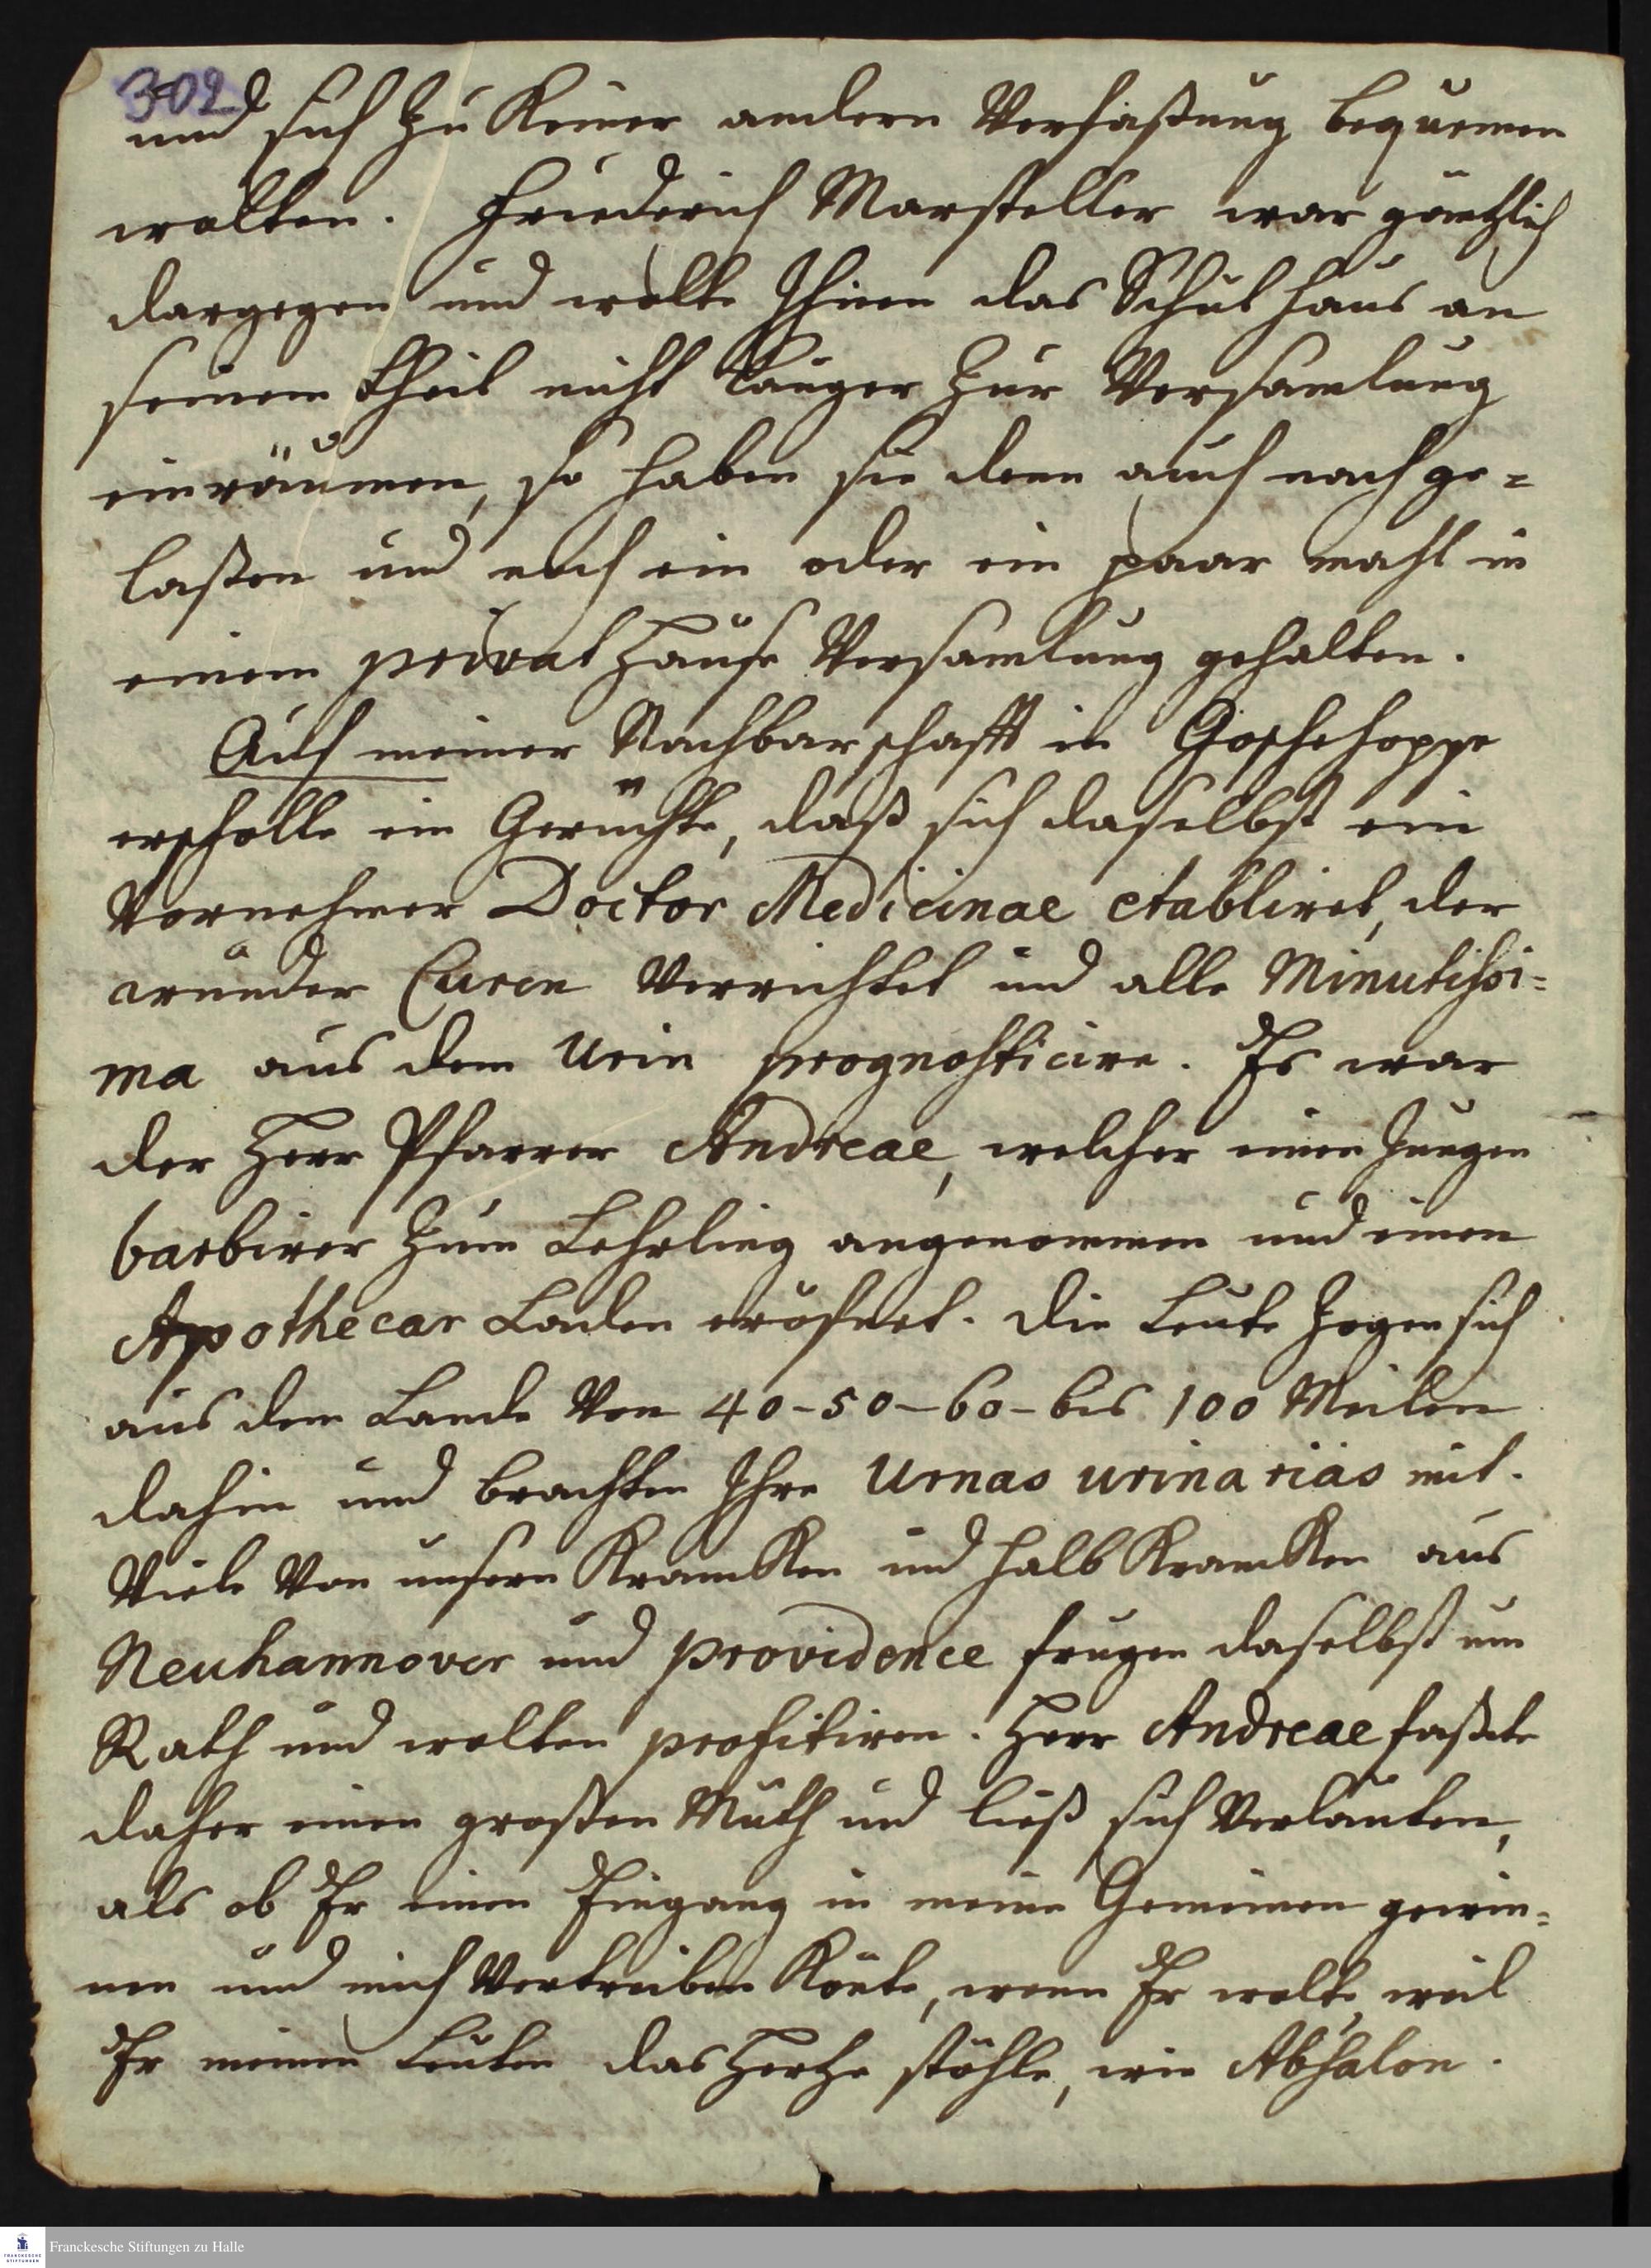 302
und sich zu keiner andern Verfaßung bequemen
wolten. Friederich Marsteller war gäntzlich
dargegen und wolte Ihnen das Schul Haus an
seinem Theil nicht länger zur Versamlung
einräumen, so haben sie denn auch nachge=
laßen und noch ein oder ein paar mahl in
einem privat Hause Versamlung gehalten.
Aus meiner Nachbarschafft in Goschehoppe
erscholle ein Gerüchte, daß sich daselbst ein
Vornehmer Doctor Medicinae etablirt, der
wunder Curen Verrichtet und alle Minutissi=
ma aus dem Urin prognosticire. Es war
der Herr Pfarrer Andreae, welcher einen Jungen
barbirer zum Lehrling angenommen und einen
Apothecar Laden eröfnet. Die Leute Zogen sich
aus dem Lande Von 40-50-60-bis 100 Meilen
dahin und brachten Ihre Urnas urinarias mit.
Viele Von unsern Krancken und halb Krancken aus
Neuhannover und providence frugen daselbst um
Rath und wolten profitiren. Herr Andreae faßete
daher einen großen Muth und ließ sich Verlauten,
als ob Er einen Eingang in meine Gemeinen gewin=
nen und mich Vertreiben Könte, wenn Er wolte, weil
Er meinen Leuten das Hertze stöhle, wie Absalon.
Franckesche Stiftungen zu Halle